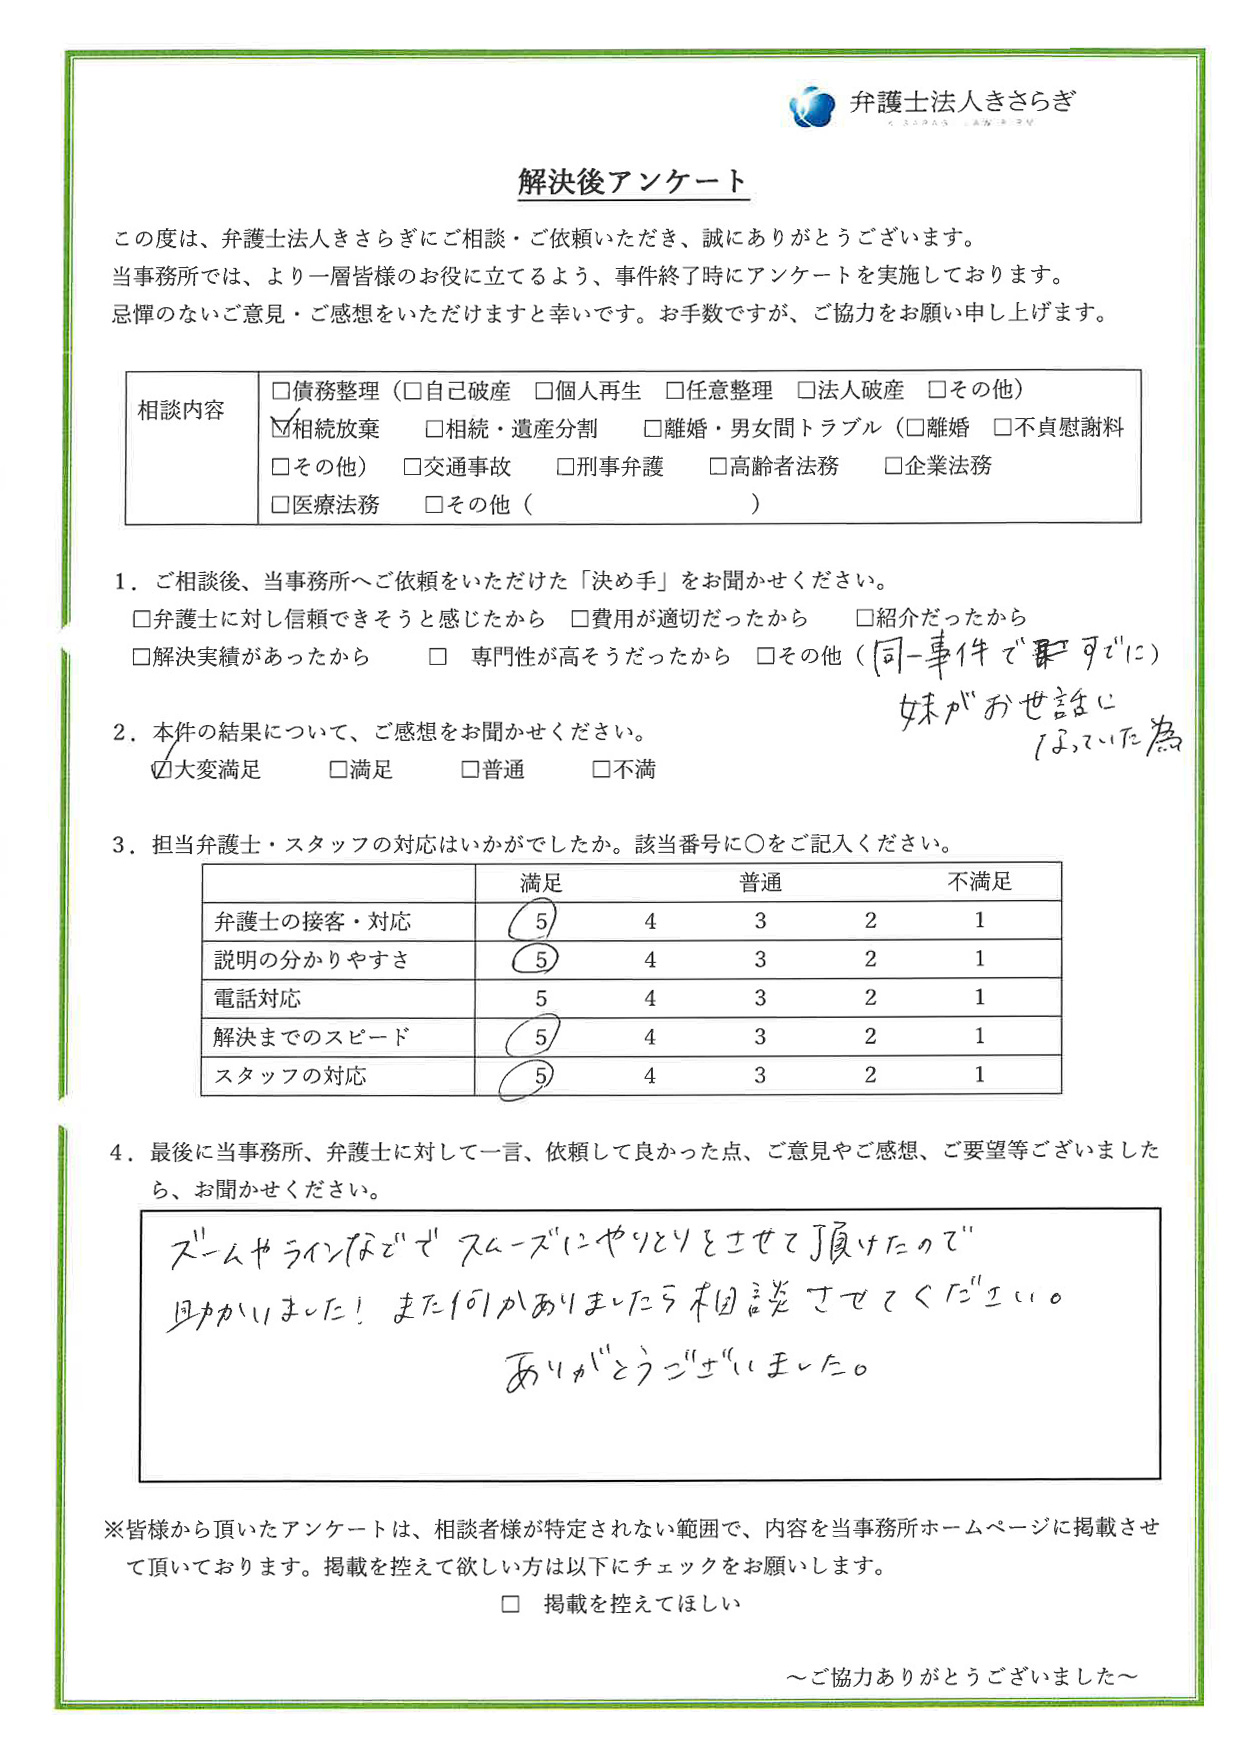 弁護士法人きさらぎ
KISARAGI LAW FIRM
解決後アンケート
この度は、弁護士法人きさらぎにご相談・ご依頼いただき、誠にありがとうございます。
当事務所では、より一層皆様のお役に立てるよう、事件終了時にアンケートを実施しております。
忌憚のないご意見・ご感想をいただけますと幸いです。お手数ですが、ご協力をお願い申し上げます。
相談内容
□債務整理（□自己破産　□個人再生　□任意整理　□法人破産　□その他）
☑相続放棄　　□相続・遺産分割　　□離婚・男女間トラブル（□離婚　□不貞慰謝料
□その他）　□交通事故　　□刑事弁護　　□高齢者法務　　□企業法務
□医療法務　　□その他（　　　　　　　　　　）
１．ご相談後、当事務所へご依頼をいただけた「決め手」をお聞かせください。
□弁護士に対し信頼できそうと感じたから　□費用が適切だったから　　□紹介だったから
□解決実績があったから　　□　専門性が高そうだったから　□その他（同一事件ですでに）
妹がお世話に
なっていた為
２．本件の結果について、ご感想をお聞かせください。
☑大変満足　　　□満足　　　□普通　　　□不満
３．担当弁護士・スタッフの対応はいかがでしたか。該当番号に〇をご記入ください。
満足　　　　普通　　　　不満足
弁護士の接客・対応　5　4　3　2　1
説明の分かりやすさ　5　4　3　2　1
電話対応　5　4　3　2　1
解決までのスピード　5　4　3　2　1
スタッフの対応　5　4　3　2　1
４．最後に当事務所、弁護士に対して一言、依頼して良かった点、ご意見やご感想、ご要望等ございました
ら、お聞かせください。
ズームやラインなどでスムーズにやりとりをさせて頂けたので
助かいました！また何かありましたら相談させてください。
ありがとうございました。
※皆様から頂いたアンケートは、相談者様が特定されない範囲で、内容を当事務所ホームページに掲載させ
て頂いております。掲載を控えて欲しい方は以下にチェックをお願いします。
□　掲載を控えてほしい
～ご協力ありがとうございました～